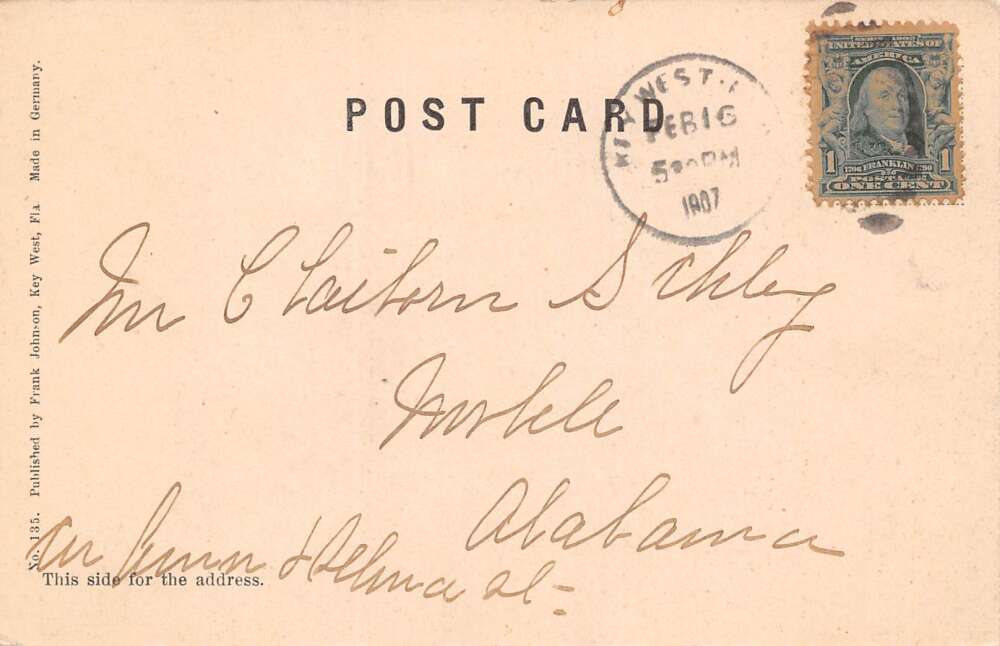 POST CARD
KEY WEST.
FEB 16
5 PM
1907
SERIES 1902
UNITED STATES OF
AMERICA
1 FRANKLIN 1
POSTAGE
ONE CENT
Mr Claiborn Schley
Mobile
Alabama
st-
This side for the address.
No. 135. Published by Frank Johnson, Key West, Fla. Made in Germany.